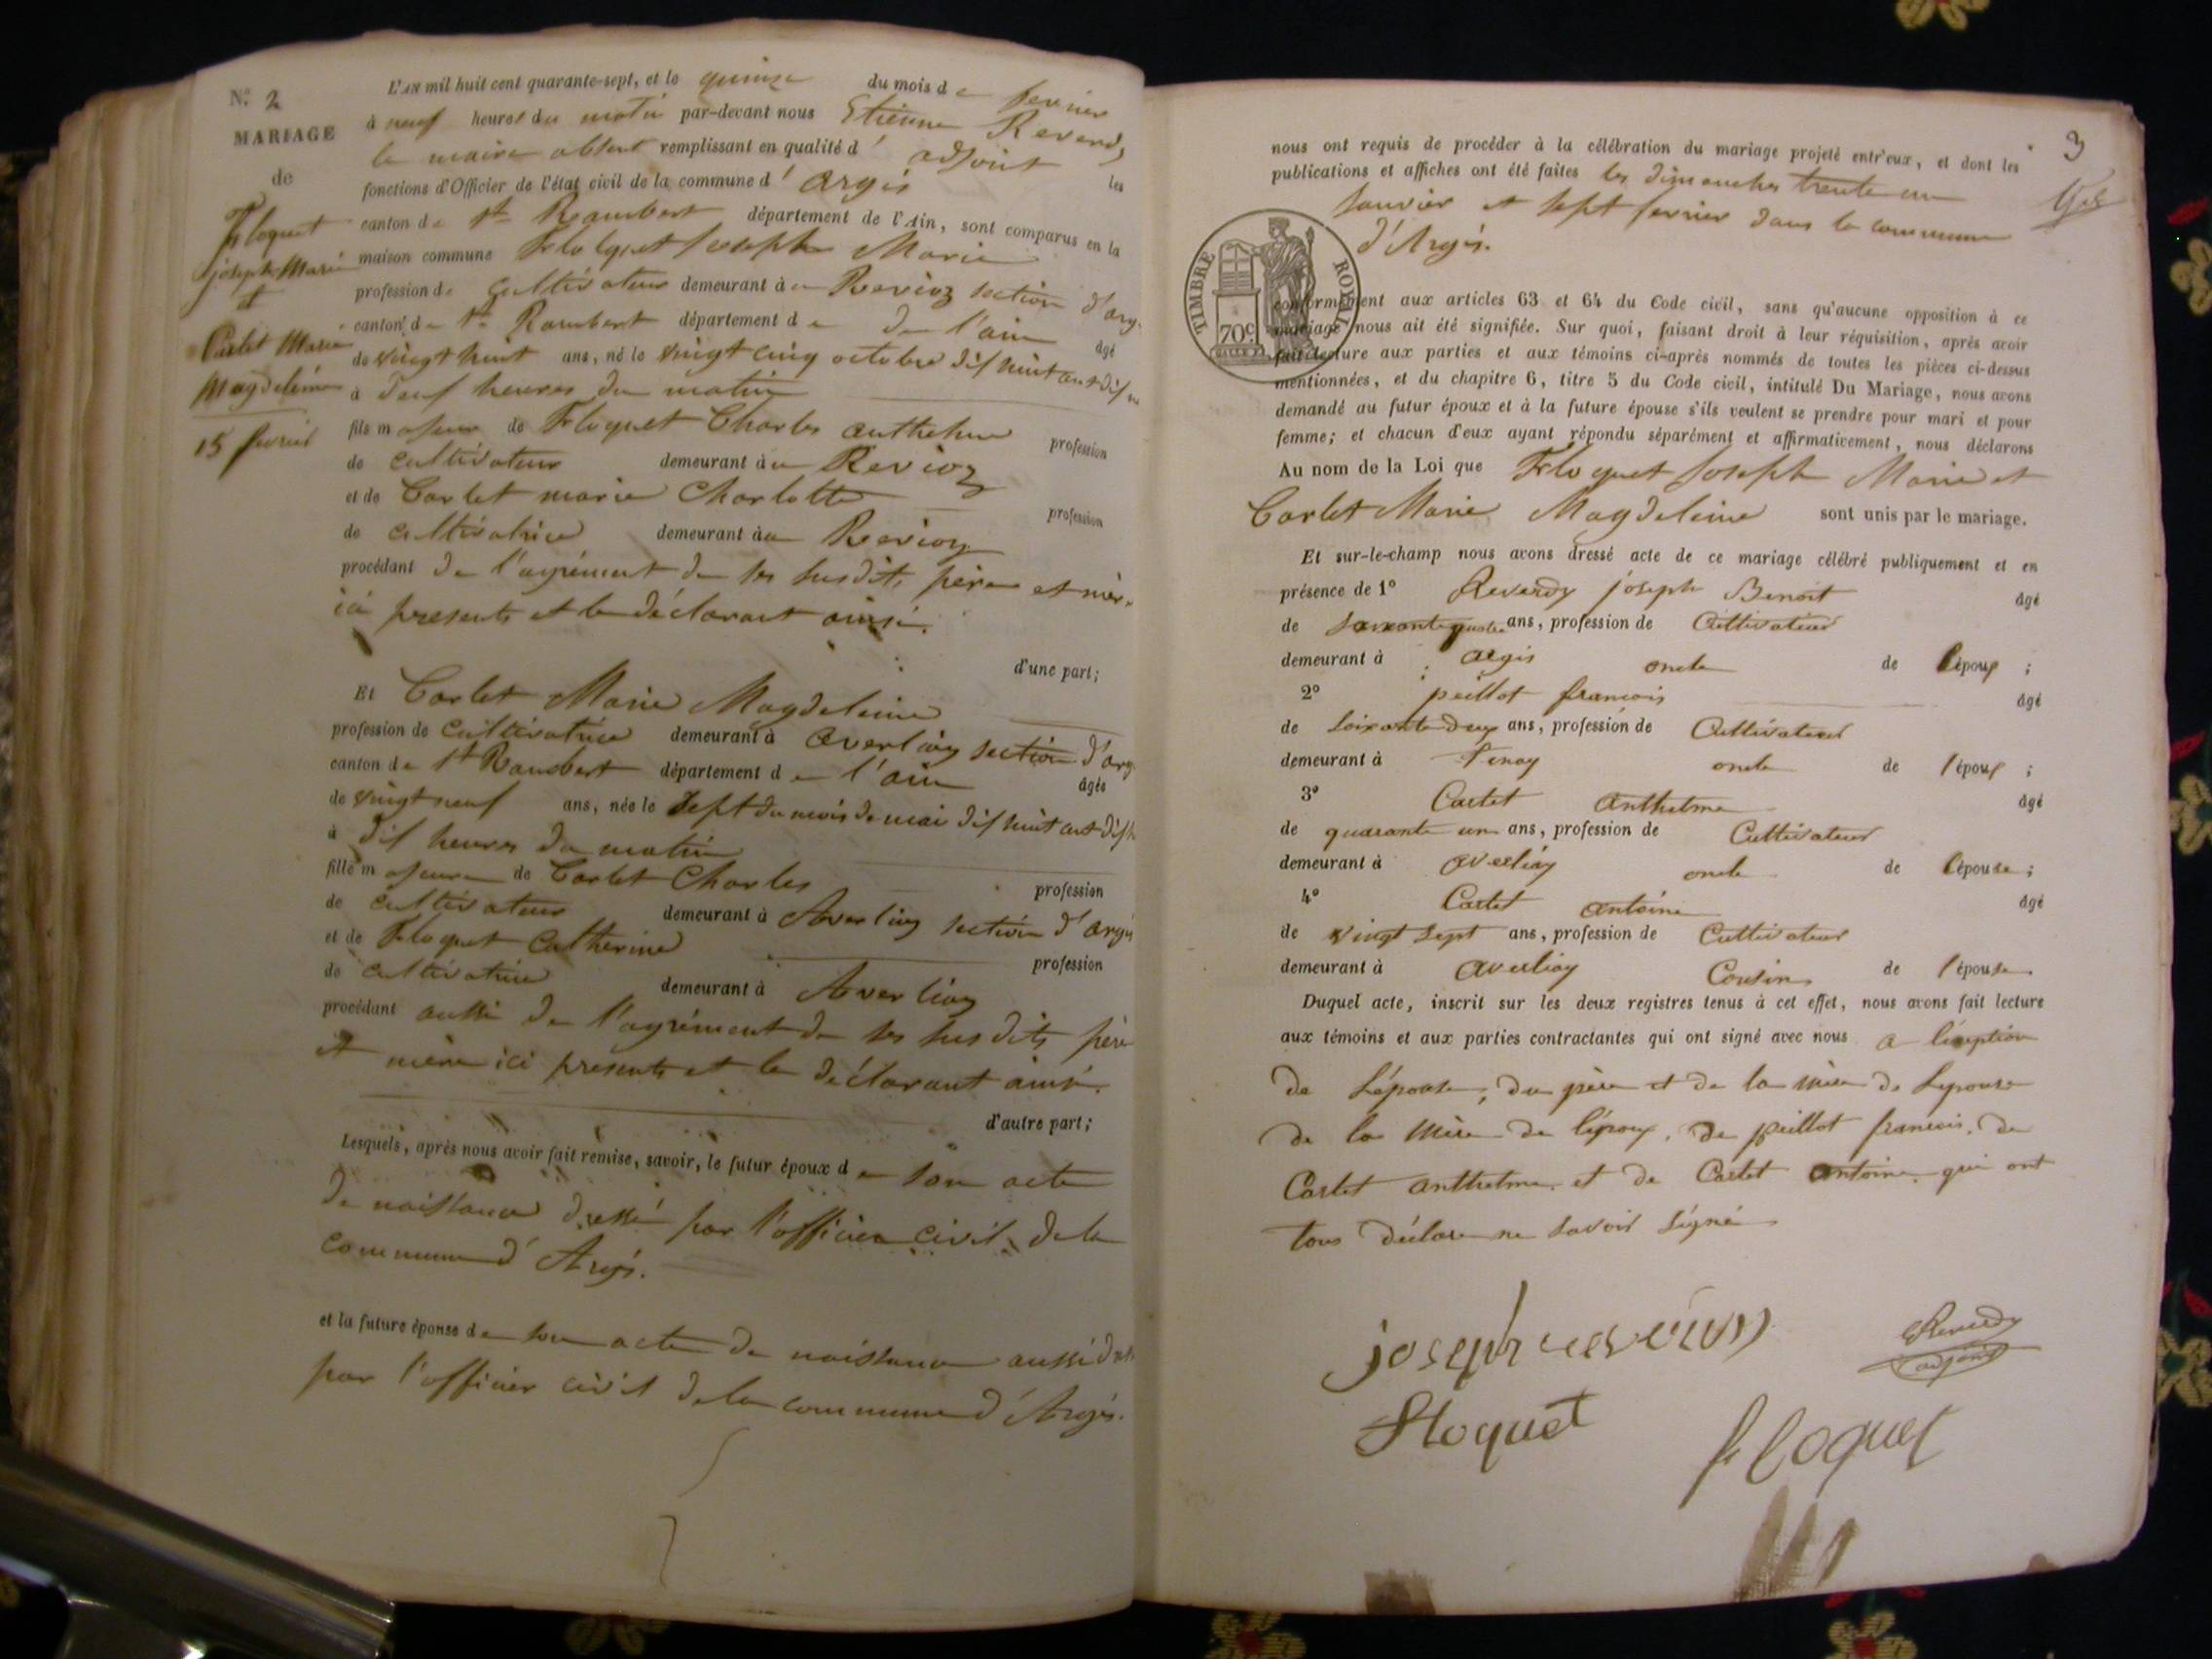 N.o 2
MARIAGE
de
Floquet
joseph Marie
et
Carlet Marie
Magdeleine
15 fevrier
L'AN mil huit cent quarante-sept, et le quinze du mois de fevrier
à neuf heures du matin par-devant nous Etienne Reverdy
le maire absent remplissant en qualité d'adjoint les
fonctions d'Officier de l'état civil de la commune d'argis
canton de St Rambert département de l'Ain, sont comparus en la
maison commune Floquet Joseph Marie
profession de Cultivateur demeurant à Revioz section d'arg
canton de St Rambert département de De l'ain âgé
de vingt huit ans, né le vingt cinq octobre dix huit cent dix
à neuf heures du matin
fils majeur de Floquet Charles anthelme profession
de cultivateur demeurant à Revioz
et de Carlet marie Charlotte profession
de cultivatrice demeurant à Revioz
procédant de l'agrément de ses susdits père et mère
ici presents et le déclarant ainsi.
d'une part;
Et Carlet Marie Magdeleine
profession de Cultivatrice demeurant à averliaz section d'arg
canton de St Rambert département de l'ain âgée
de vingt neuf ans, née le sept du mois de mai dix huit cent dix h
à dix heures du matin
fille majeure de Carlet Charles profession
de cultivateur demeurant à Averliaz section d'argis
et de Floquet Catherine profession
de cultivatrice demeurant à Averliaz
procédant aussi de l'agrément de ses susdits père
et mère ici presents et le déclarant ainsi.
d'autre part;
Lesquels, après nous avoir fait remise, savoir, le futur époux de son acte
de naissance dressé par l'officier civil de la
commune d'Argis.
et la future épouse de son acte de naissance aussi dres
par l'officier civil de la commune d'Argis.
3
nous ont requis de procéder à la célébration du mariage projeté entr'eux, et dont les
publications et affiches ont été faites les dimanches trente un
Janvier et sept fevrier dans la commune
d'Argis.
TIMBRE ROYAL
70c
conformément aux articles 63 et 64 du Code civil, sans qu'aucune opposition à ce
mariage nous ait été signifiée. Sur quoi, faisant droit à leur réquisition, après avoir
fait lecture aux parties et aux témoins ci-après nommés de toutes les pièces ci-dessus
mentionnées, et du chapitre 6, titre 5 du Code civil, intitulé Du Mariage, nous avons
demandé au futur époux et à la future épouse s'ils veulent se prendre pour mari et pour
femme; et chacun d'eux ayant répondu séparément et affirmativement, nous déclarons
Au nom de la Loi que Floquet Joseph Marie et
Carlet Marie Magdeleine sont unis par le mariage.
Et sur-le-champ nous avons dressé acte de ce mariage célébré publiquement et en
présence de 1o Reverdy joseph Benoit âgé
de soixante quatre ans, profession de Cultivateur
demeurant à argis oncle de l'époux;
2o peillot francois âgé
de soixante deux ans, profession de Cultivateur
demeurant à Tenay oncle de l'époux;
3o Carlet anthelme âgé
de quarante un ans, profession de Cultivateur
demeurant à averliaz oncle de l'épouse;
4o Carlet antoine âgé
de vingt sept ans, profession de Cultivateur
demeurant à averliaz Cousin de l'épouse
Duquel acte, inscrit sur les deux registres tenus à cet effet, nous avons fait lecture
aux témoins et aux parties contractantes qui ont signé avec nous a l'éxeption
de l'épouse, du père et de la mère de l'epouse
de la mère de l'époux, de peillot francois, de
Carlet anthelme, et de Carlet antoine qui ont
tous déclare ne savoir signé
joseph reverdy
Reverdy
adjoint
Floquet
floquet